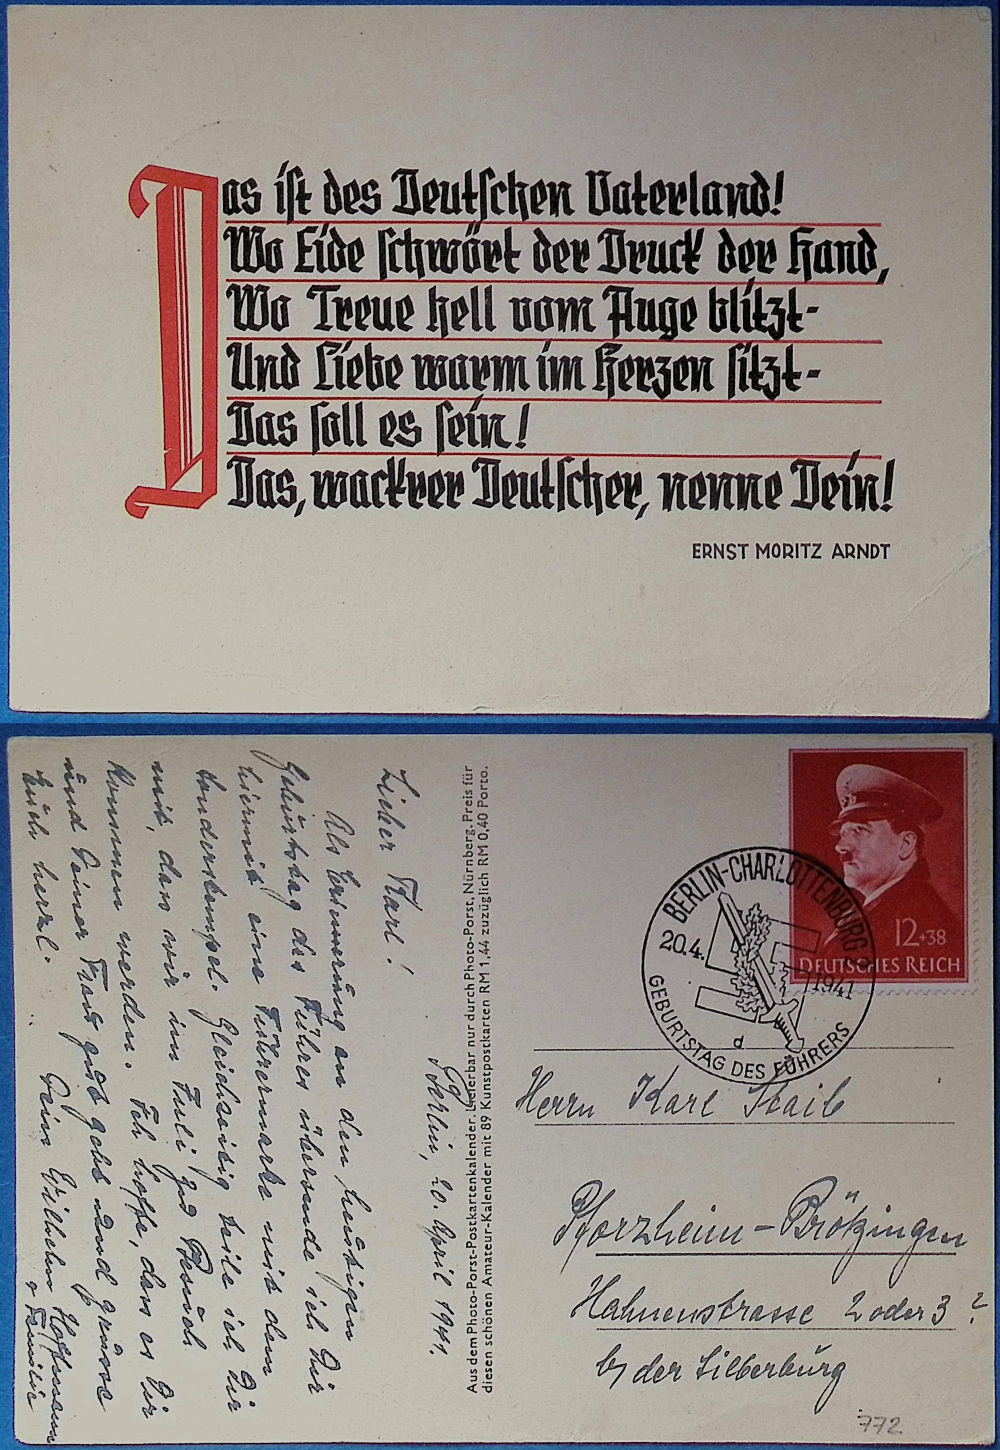 Das ist des Deutschen Vaterland!
Wo Eide schwört der Druck der Hand,
Wo Treue hell vom Auge blitzt-
Und Liebe warm im Herzen sitzt-
Das soll es sein!
Das, wackrer Deutscher, nenne Dein!
ERNST MORITZ ARNDT
Berlin, 20. April 1941.
Lieber Karl!
Als Erinnerung an den heutigen
Geburtstag des Führers übersende ich Dir
hiermit eine Führermarke mit dem
Sonderstempel. Gleichzeitig teile ich Dir
mit, dass wir im Juli zu Besuch
kommen werden. Ich hoffe, dass es Dir
und Deiner Frau gut geht und grüsse
Euch herzl.
Dein Wilhelm Hoffmann
u. Familie
Aus dem Photo-Porst-Postkartenkalender. Lieferbar nur durch Photo-Porst, Nürnberg. Preis für
diesen schönen Amateur-Kalender mit 89 Kunstpostkarten RM 1,44 zuzüglich RM 0,40 Porto.
12+38
DEUTSCHES REICH
BERLIN-CHARLOTTENBURG 2
20.4. 1941
d
GEBURTSTAG DES FÜHRERS
Herrn Karl Staib
Pforzheim-Brötzingen
Hahnenstrasse 2 oder 3 ?
b/ der Silberburg
772